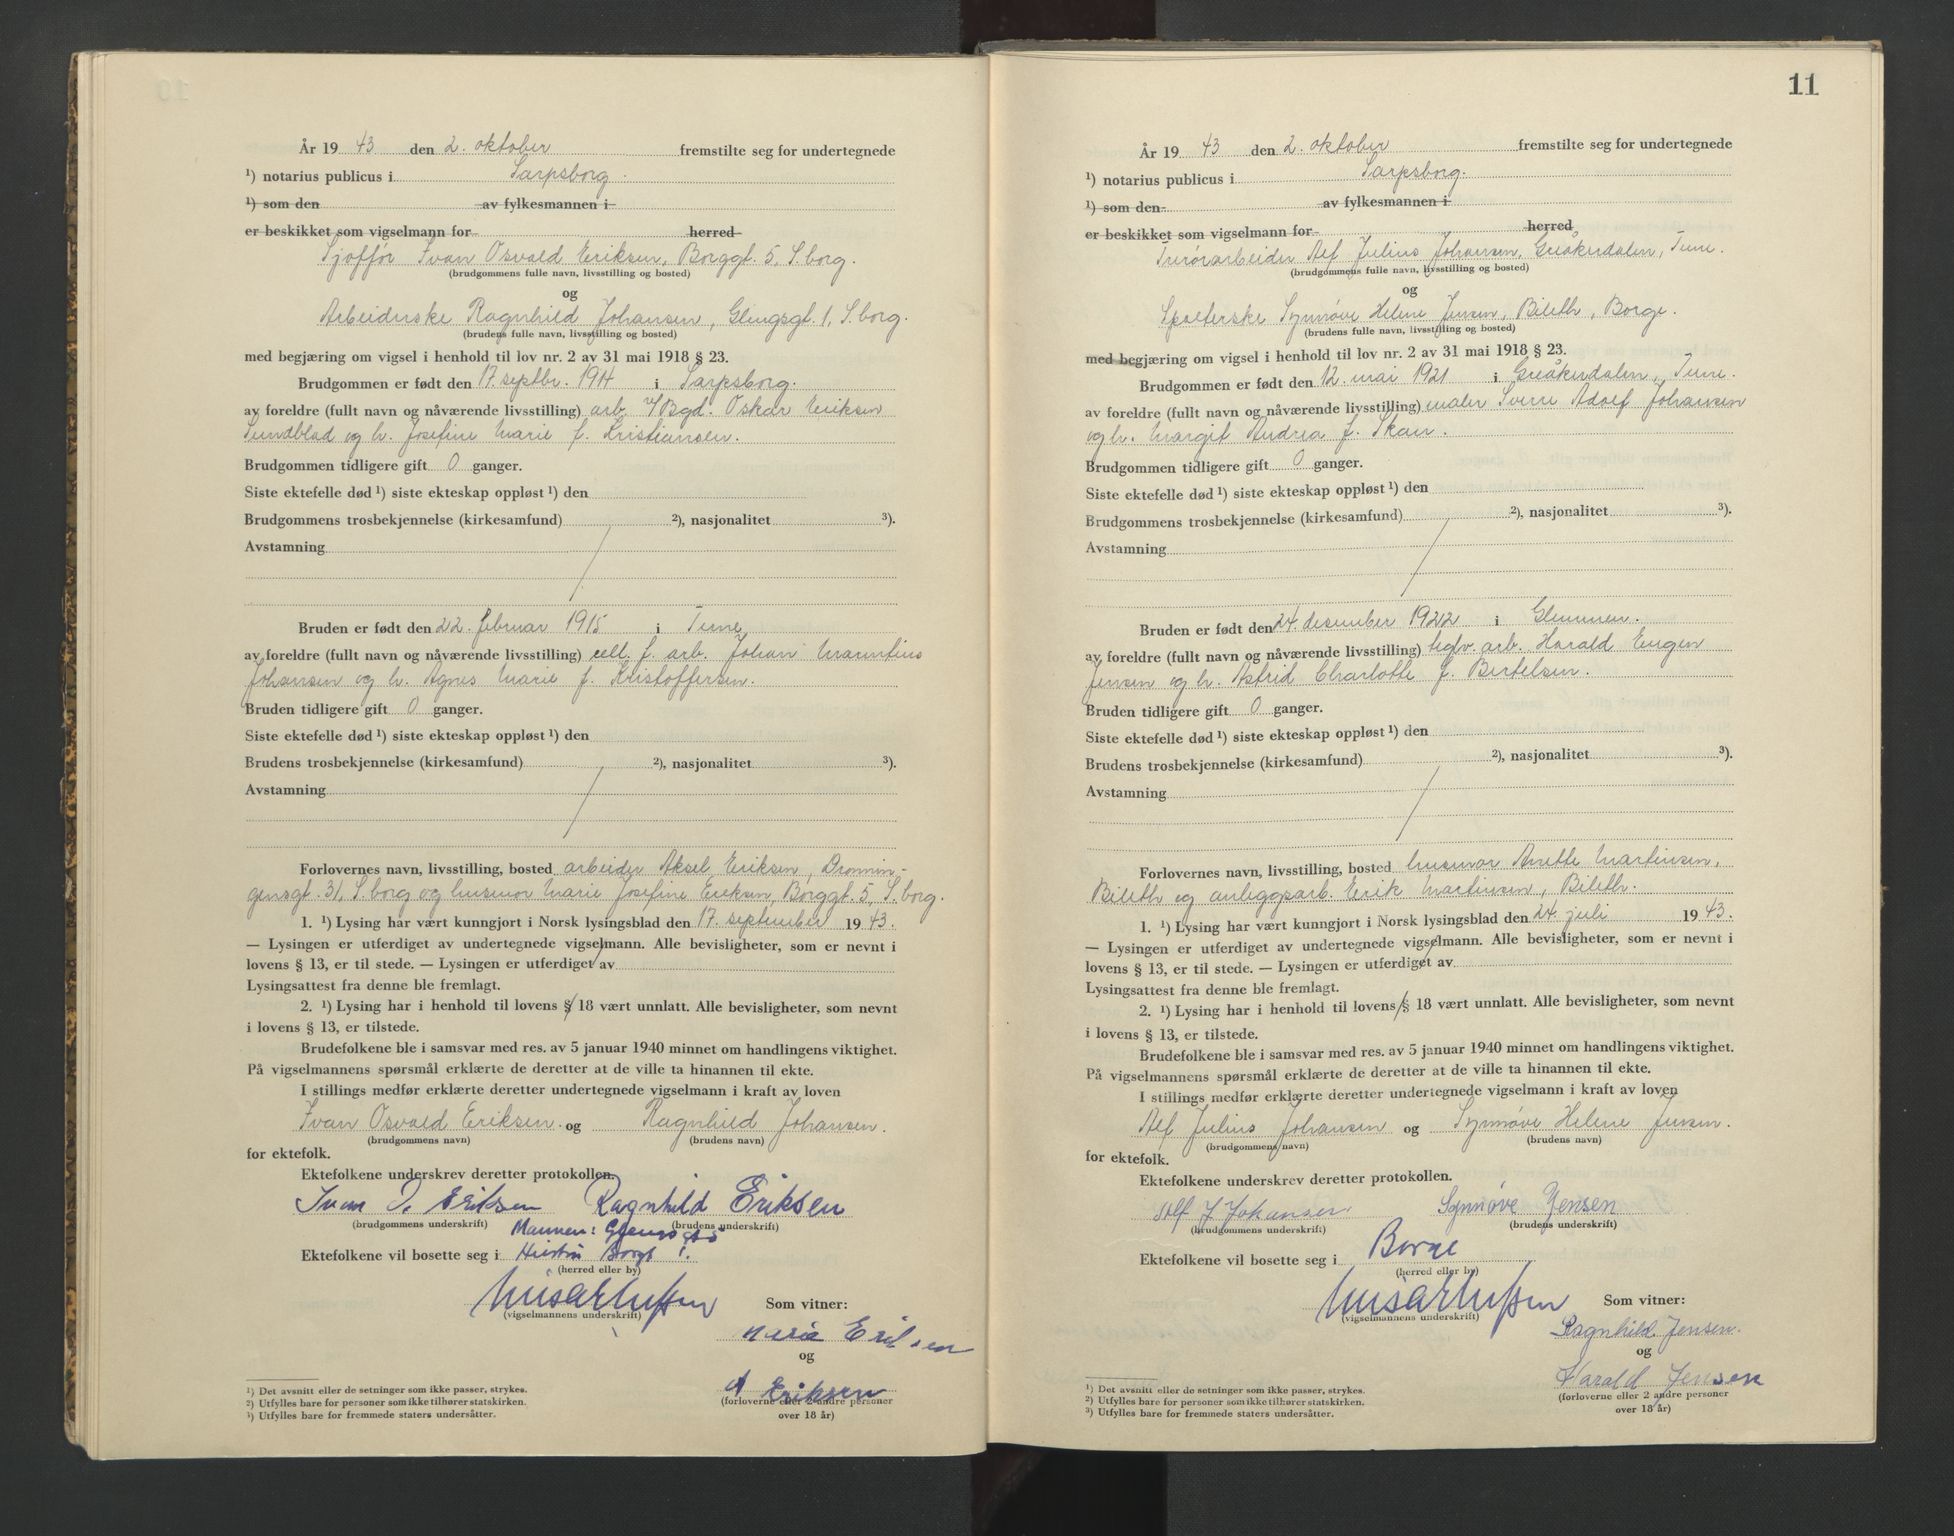 År 19 43 den 2. oktober fremstilte seg for undertegnede
¹) notarius publicus i Sarpsborg.
¹) som den av fylkesmannen i
er beskikket som vigselmann for herred
Sjøffør Ivan Osvald Eriksen, Borggt. 5, S.borg.
(brudgommens fulle navn, livsstilling og bosted)
og
Arbeiderske Ragnhild Johansen, Glengsgt. 1, S.borg.
(brudens fulle navn, livsstilling og bosted)
med begjæring om vigsel i henhold til lov nr. 2 av 31 mai 1918 § 23.
Brudgommen er født den 17. septbr. 1914 i Sarpsborg.
av foreldre (fullt navn og nåværende livsstilling) arb. v/Bgd. Oskar Eriksen
Sundblad og h. Josefine Marie f. Kristiansen.
Brudgommen tidligere gift 0 ganger.
Siste ektefelle død ¹) siste ekteskap oppløst ¹) den
Brudgommens trosbekjennelse (kirkesamfund) ²), nasjonalitet ³).
Avstamning
Bruden er født den 22. februar 1915 i Tune
av foreldre (fullt navn og nåværende livsstilling) cell. f. arb. Johan
Johansen og h. Agnes Marie f. Kristoffersen.
Bruden tidligere gift 0 ganger.
Siste ektefelle død ¹) siste ekteskap oppløst ¹) den
Brudens trosbekjennelse (kirkesamfund) ²), nasjonalitet ³).
Avstamning
Forlovernes navn, livsstilling, bosted arbeider Aksel Eriksen, Dronnin-
gensgt. 31, S.borg og husmor Marie Josefine Eriksen, Borggt. 5, S.borg.
1. ¹) Lysing har vært kunngjort i Norsk lysingsblad den 17. september 19 43.
— Lysingen er utferdiget av undertegnede vigselmann. Alle bevisligheter, som er nevnt i
lovens § 13, er til stede. — Lysingen er utferdiget av
Lysingsattest fra denne ble fremlagt.
2. ¹) Lysing har i henhold til lovens § 18 vært unnlatt. Alle bevisligheter, som nevnt
i lovens § 13, er tilstede.
Brudefolkene ble i samsvar med res. av 5 januar 1940 minnet om handlingens viktighet.
På vigselmannens spørsmål erklærte de deretter at de ville ta hinannen til ekte.
I stillings medfør erklærte deretter undertegnede vigselmann i kraft av loven
Ivan Osvald Eriksen. og Ragnhild Johansen.
(brudgommens navn) (brudens navn)
for ektefolk.
Ektefolkene underskrev deretter protokollen.
Ivan O. Eriksen Ragnhild Eriksen
(brudgommens underskrift) (brudens underskrift)
Mannen:
Ektefolkene vil bosette seg i Hustru Borgt
(herred eller by)
(vigselmannens underskrift) Som vitner:
Maria Eriksen
og
A Eriksen
(forloverne eller 2 andre personer
over 18 år)
¹) Det avsnitt eller de setninger som ikke passer, strykes.
²) Utfylles bare for personer som ikke tilhører statskirken.
³) Utfylles bare for fremmede staters undersåtter.
11
År 19 43 den 2. oktober fremstilte seg for undertegnede
¹) notarius publicus i Sarpsborg.
¹) som den av fylkesmannen i
er beskikket som vigselmann for herred
Alf Julius Johansen, Greåkerdalen, Tune.
(brudgommens fulle navn, livsstilling og bosted)
og
Spolerske Synnøve Helene Jensen, Bileth, Borge.
(brudens fulle navn, livsstilling og bosted)
med begjæring om vigsel i henhold til lov nr. 2 av 31 mai 1918 § 23.
Brudgommen er født den 12. mai 1921 i Greåkerdalen, Tune.
av foreldre (fullt navn og nåværende livsstilling) maler Sverre Adolf Johansen
og h. Margit Andrea f. Skau.
Brudgommen tidligere gift 0 ganger.
Siste ektefelle død ¹) siste ekteskap oppløst ¹) den
Brudgommens trosbekjennelse (kirkesamfund) ²), nasjonalitet ³).
Avstamning
Bruden er født den 24. desember 1922 i Glemmen.
av foreldre (fullt navn og nåværende livsstilling) teglv. arb. Harald Eugen
Jensen og h. Astrid Charlotte f. Bertelsen.
Bruden tidligere gift 0 ganger.
Siste ektefelle død ¹) siste ekteskap oppløst ¹) den
Brudens trosbekjennelse (kirkesamfund) ²), nasjonalitet ³).
Avstamning
Forlovernes navn, livsstilling, bosted husmor Anette Martinsen,
Bileth og anleggsarb. Erik Martinsen, Bileth.
1. ¹) Lysing har vært kunngjort i Norsk lysingsblad den 24. juli 19 43.
— Lysingen er utferdiget av undertegnede vigselmann. Alle bevisligheter, som er nevnt i
lovens § 13, er til stede. — Lysingen er utferdiget av
Lysingsattest fra denne ble fremlagt.
2. ¹) Lysing har i henhold til lovens § 18 vært unnlatt. Alle bevisligheter, som nevnt
i lovens § 13, er tilstede.
Brudefolkene ble i samsvar med res. av 5 januar 1940 minnet om handlingens viktighet.
På vigselmannens spørsmål erklærte de deretter at de ville ta hinannen til ekte.
I stillings medfør erklærte deretter undertegnede vigselmann i kraft av loven
Alf Julius Johansen og Synnøve Helene Jensen.
(brudgommens navn) (brudens navn)
for ektefolk.
Ektefolkene underskrev deretter protokollen.
Alf J Johansen Synnøve Jensen
(brudgommens underskrift) (brudens underskrift)
Ektefolkene vil bosette seg i Borge
(herred eller by)
(vigselmannens underskrift) Som vitner:
Ragnhild Jensen.
og
Harald Jensen
(forloverne eller 2 andre personer
over 18 år)
¹) Det avsnitt eller de setninger som ikke passer, strykes.
²) Utfylles bare for personer som ikke tilhører statskirken.
³) Utfylles bare for fremmede staters undersåtter.